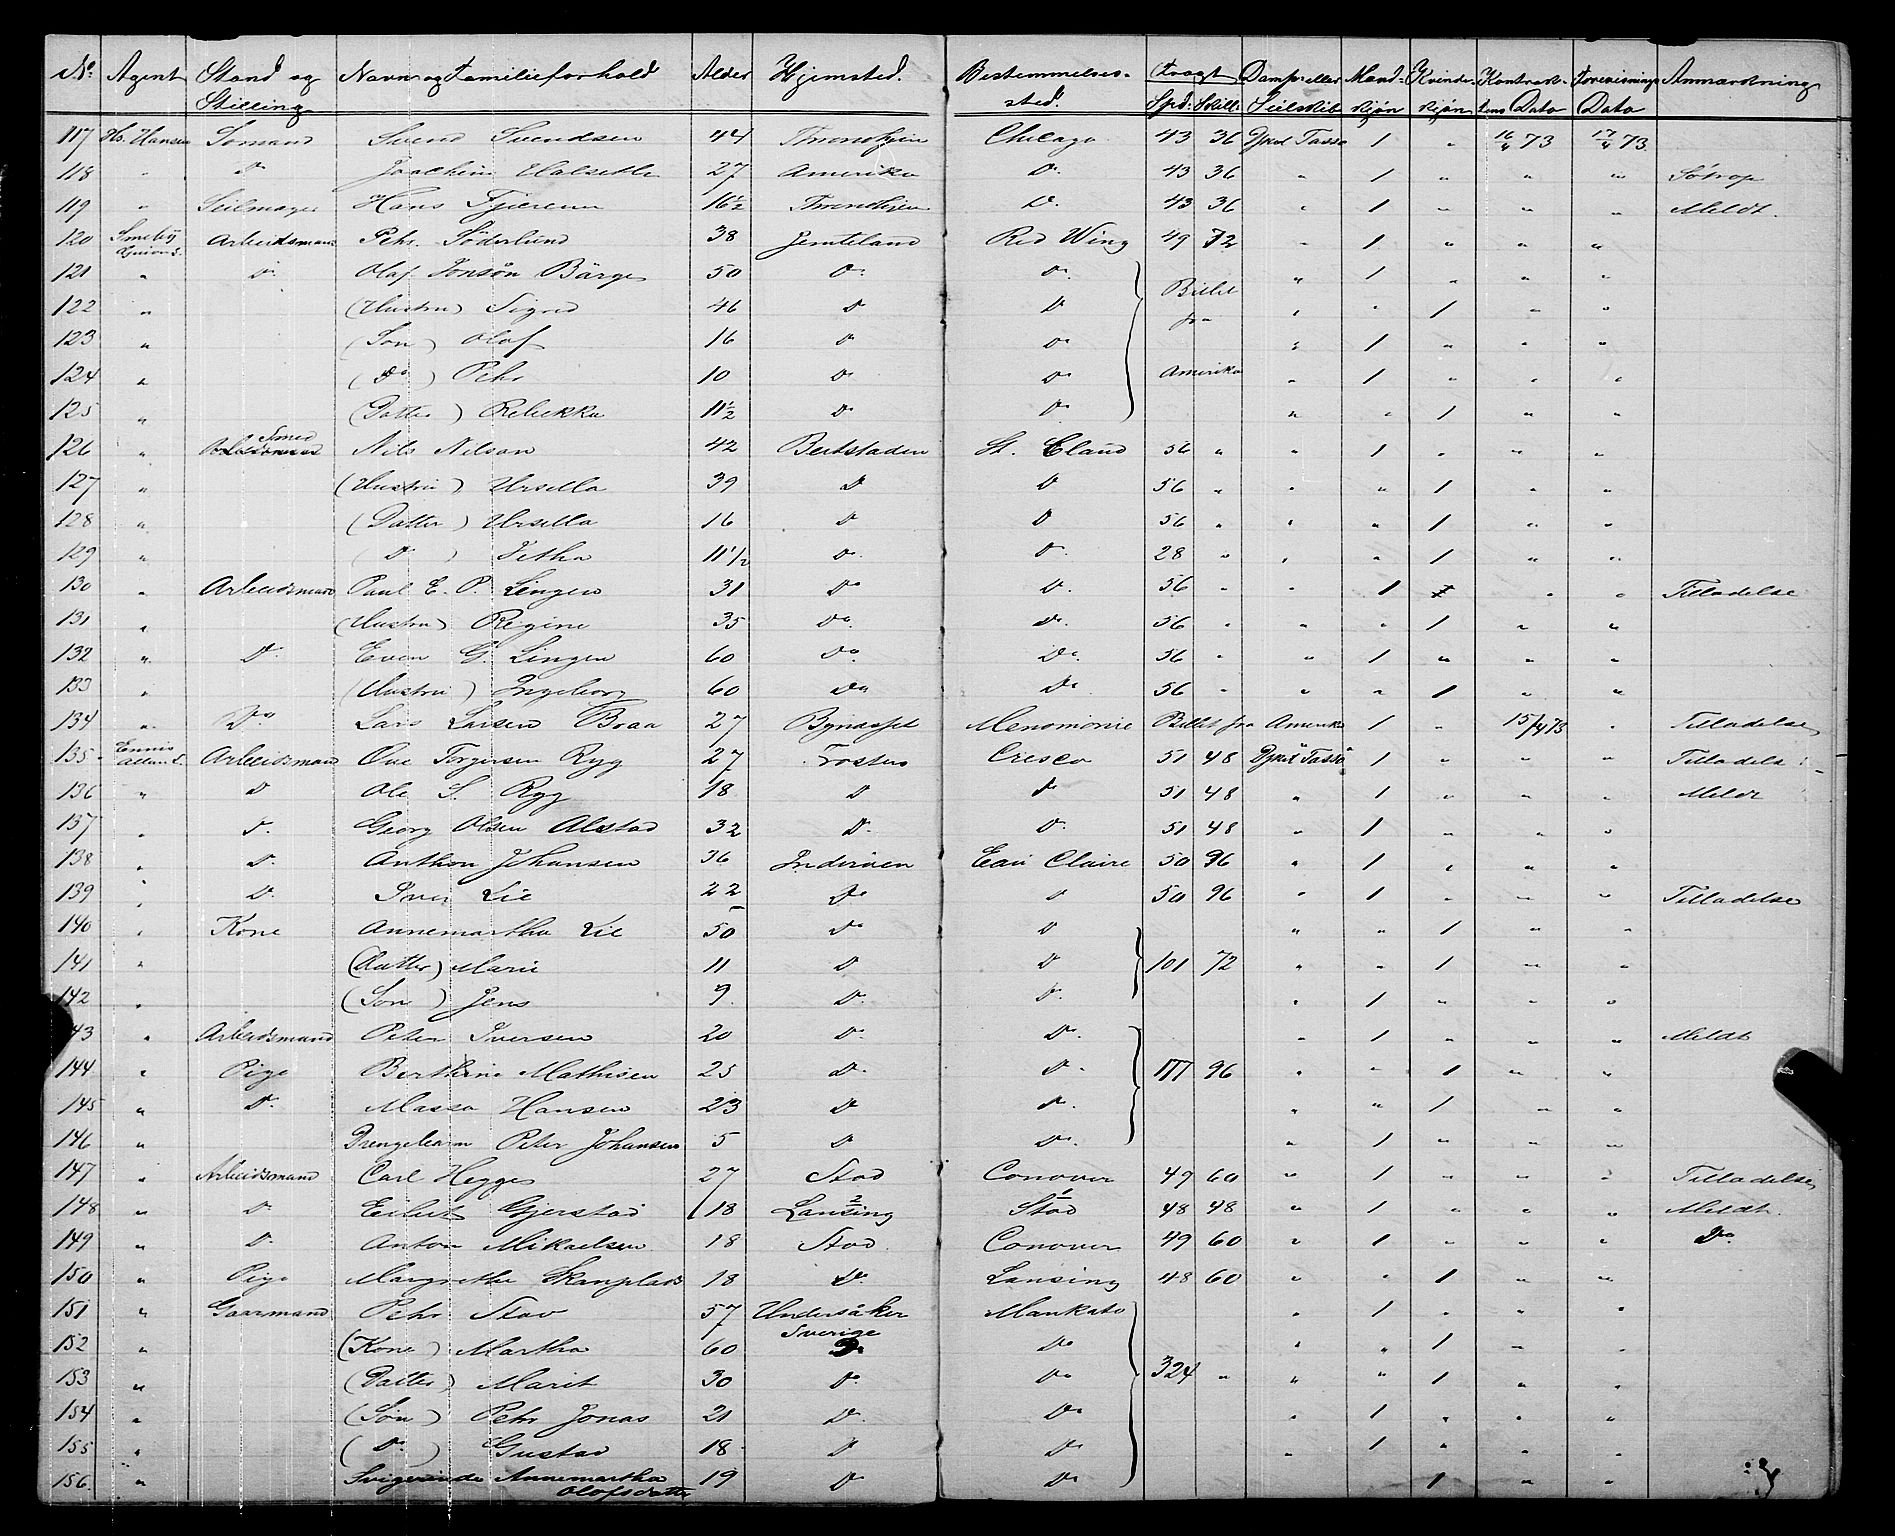 No. Agent Stand og Stilling Navn og Familieforhold Alder Hjemsted. Bestemmelses-sted. Fragt Spd. Skill. Damp eller Seilskib Mand-kjøn Kvinde-kjøn Kontrak-tens Dato Forevisnings Dato Anmærkning
117 Hs. Hansen Sømand Svend Svendsen 44 Throndhjem Chicago 43 36 Dpsk Tasso 1 " 16/4 73 17/4 73
118 " Do Joachim Halseth 27 Amerika Do. 43 36 " 1 " " " Søtrop
119 " Seilmager Hans Fjæren 16½ Throndhjem Do. 43 36 " 1 " " " Meldt.
120 Smeby Arbeidsmand Pehr Söderlund 38 Jemteland Red Wing 49 72 " 1 " " "
121 " Do Olaf Jonsøn Bärge 50 Do. Do. Billet " 1 " " "
122 " (Hustru) Sigrid 46 Do Do fra " " 1 " "
123 " (Søn) Olof 16 Do Do " 1 " " "
124 " (Do) Pehr 10 Do Do Amerika " 1 " " "
125 " (Datter) Rebekka 11½ Do Do " " 1 " "
126 " Smed Nils Nilson 42 St. Cloud 56 " " 1 " " "
127 " (Hustru) Ursella 39 Do Do 56 " " " 1 " "
128 " (Datter) Ursella 16 Do Do 56 " " " 1 " "
129 " (Do) 11½ Do. Do. 28 " " " 1 " "
130 " Arbeidsmand Paul E. P. Lingen 31 Do Do. 56 " " 1 " " Tilladelse
131 " (Hustru) Regine 35 Do. Do. 56 " " " 1 " "
132 " Do. Even G. Lingen 60 Do. Do. 56 " " 1 " " "
133 " (Hustru) Ingeborg 60 Do Do 56 " " " 1 " "
134 " Do Lars Larsen Braa 27 Bynæsset Menomonie Billet fra Amerika 1 " 15/4 73 " Tilladelse
135 Arbeidsmand Ove Torgersen Ryg 27 Frosten Cresco 51 48 Dpsk Tasso 1 " " " Tilladelse
136 " Do Ole S. Ryg 18 Do Do 51 48 " 1 " " " Meldt
137 " Do. Georg Olsen Alstad 32 Do. Do. 51 48 " 1 " " "
138 " Do. Anthon Johansen 36 Inderøen Eau Claire 50 96 " 1 " " "
139 " Do. Iver Lie 22 Do Do 50 96 " 1 " " " Tilladelse
140 " Kone Annemartha Lie 50 Do Do " " 1 " "
141 " (Datter) Marie 11 Do Do 101 72 " " 1 " "
142 " (Søn) Jens 9. Do. Do. " 1 " " "
43 " Arbeidsmand Peter Iversen 20 Do. Do. " 1 " " " Meldt
144 " Pige Berthine Mathisen 25 Do. Do. 177 96 " " 1 " "
145 " Do. Massa Hansen 23 Do Do. " " 1 " "
146 " Drengebarn Peter Johansen 5 Do Do. " 1 " " "
147 " Arbeidsmand Carl Hegge 27 Stod Conover 49 60 " 1 " " " Tilladelse
148 " Do Eilert Gjerstad 18 2 Lansing 1 Stod 48 48 " 1 " " " Meldt.
149 " Do. Anton Mikaelsen 18 Stod. Conover 49 60 " 1 " " " Do.
150 " Pige Margrethe 18 Do. Lansing 48 60 " " 1 " "
151 " Gaarmand Pehr Stav 57 Undersåker Sverige Mankato " 1 " " "
152 " (Kone) Martha 60 Do Do " " 1 " "
153 " (Datter) Marit 30 Do. Do 324 " " " 1 " "
154 " (Søn) Pehr Jonas 21 Do. Do " 1 " " "
155 " (Do.) Gustav 18 Do Do " 1 " " "
156 " Svigerinde Annemartha Olofsdatter 19 Do Do 1 " "